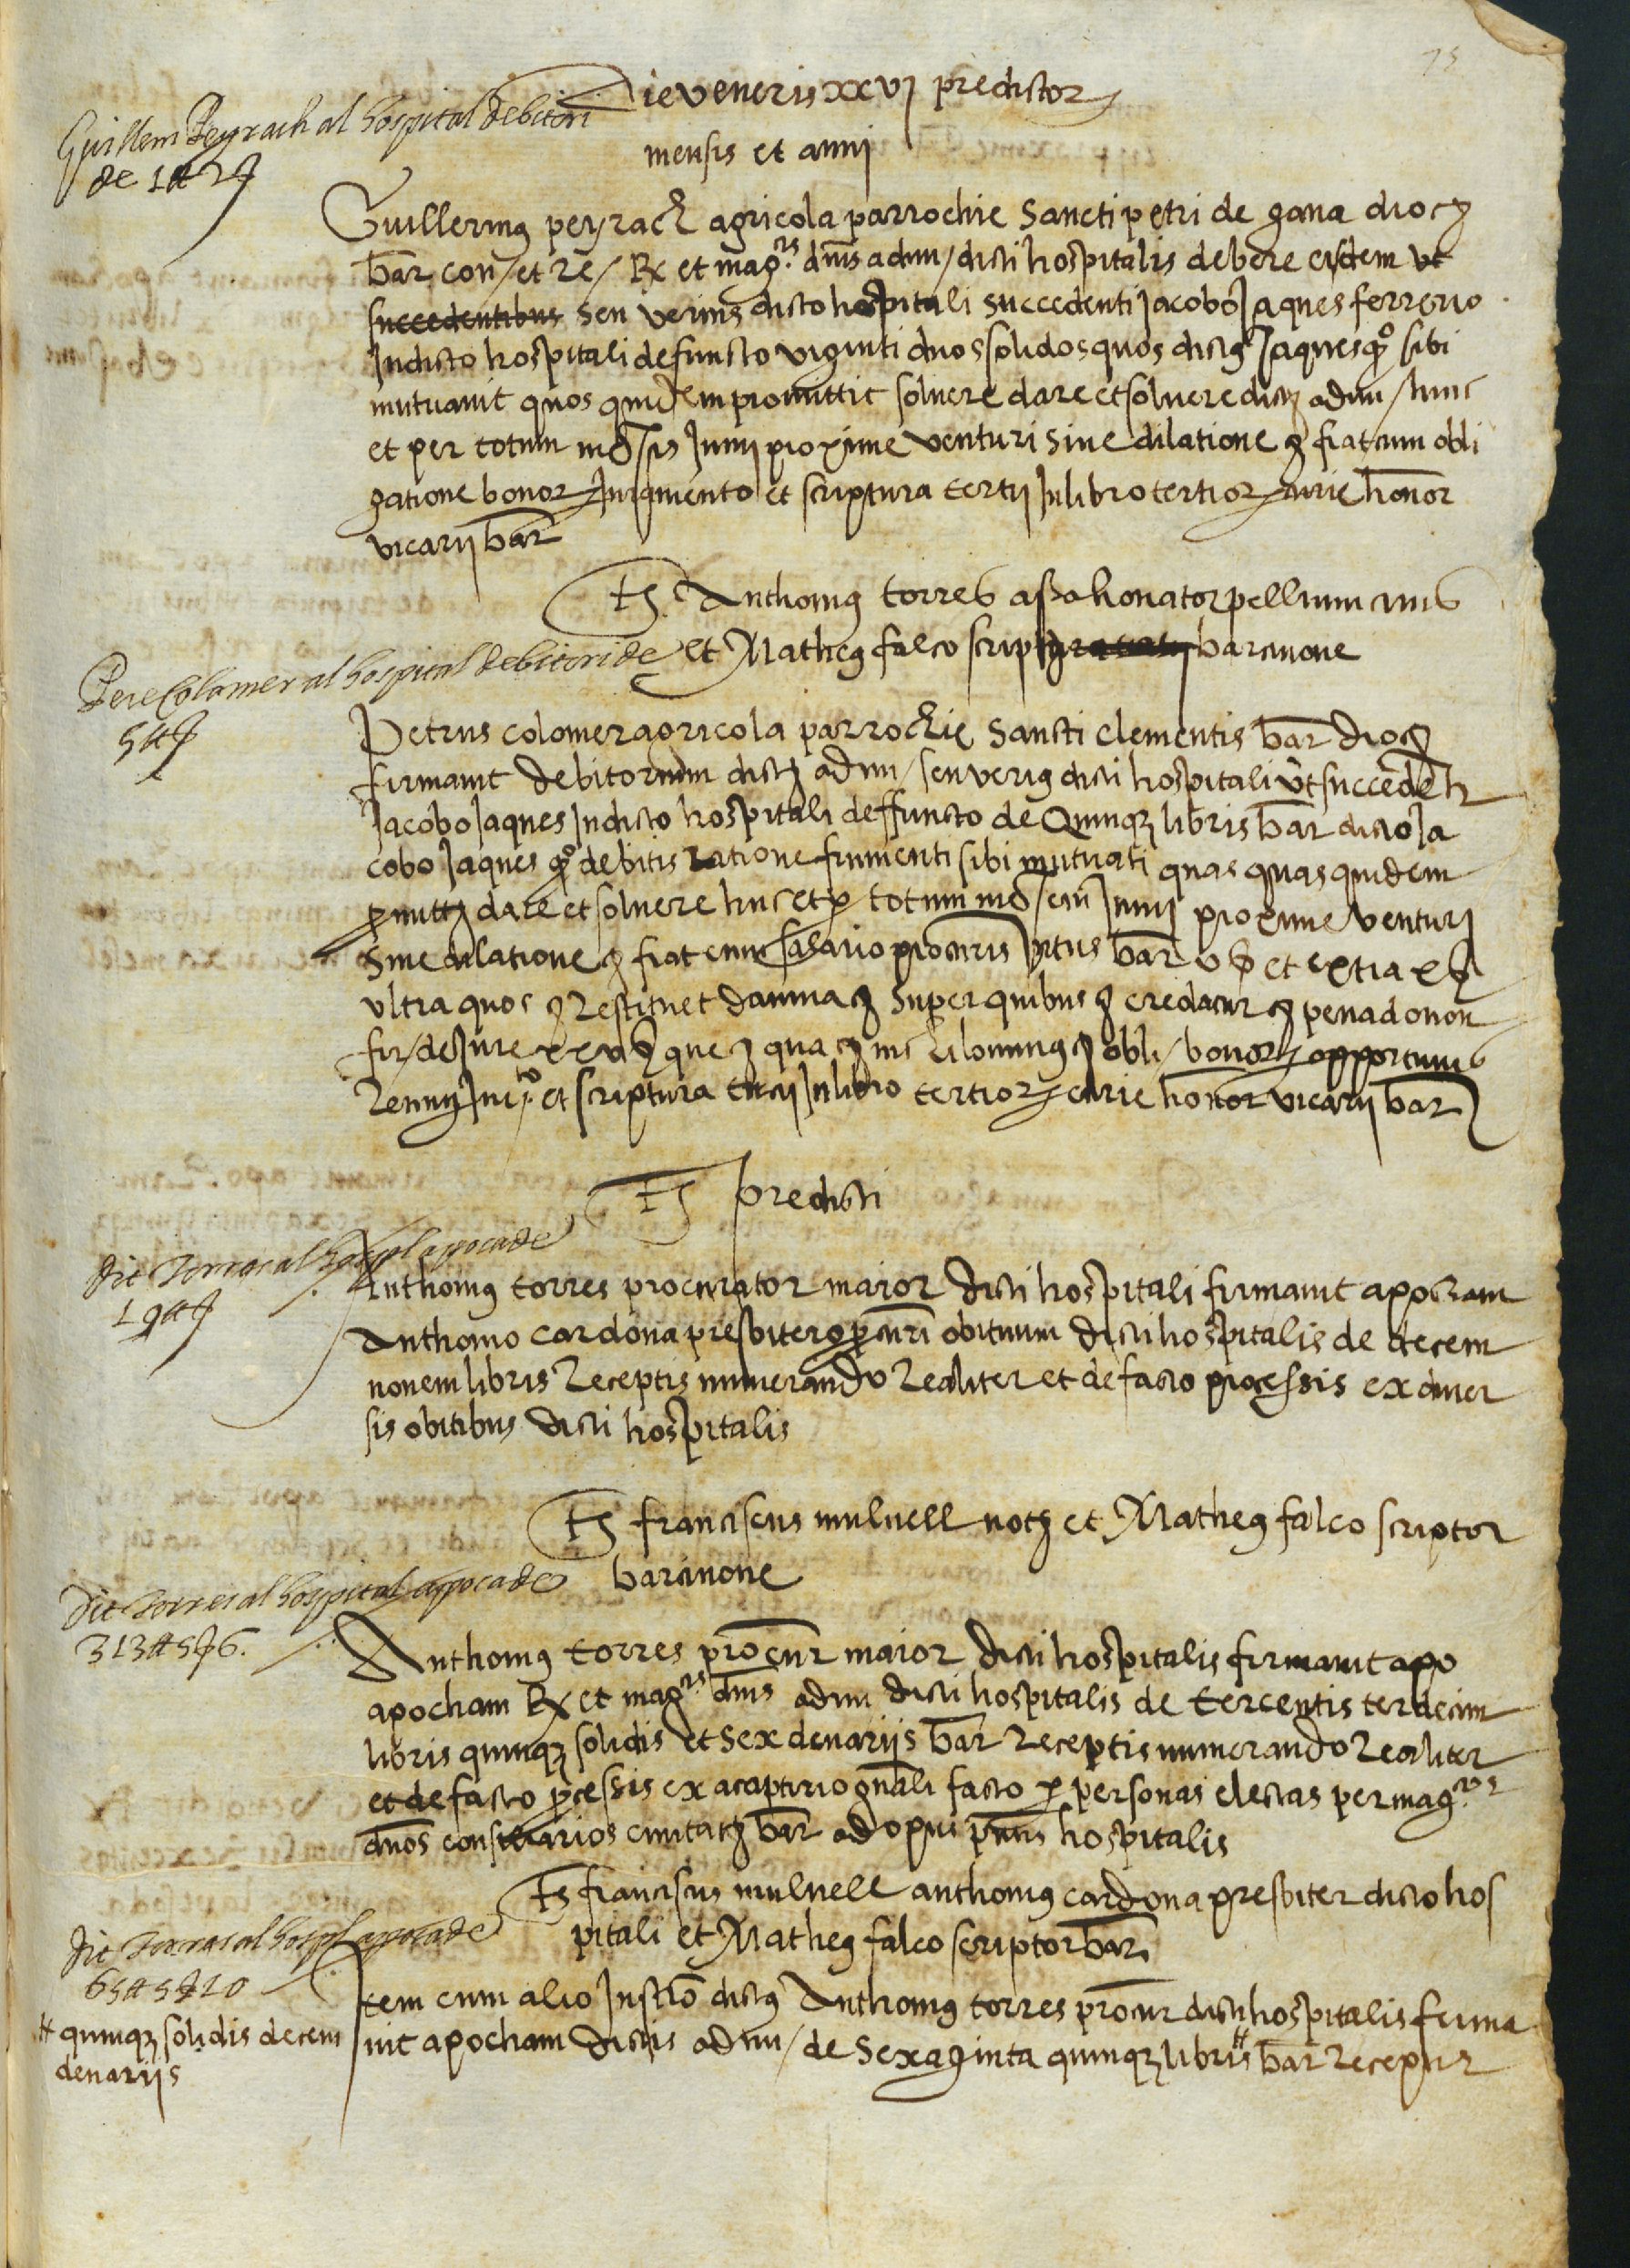 75
Die veneris xxvj predictor
mensis et anni
Guillem Peyrach al hospital debitori
de 1 # 2 s
Guillermus peyrach agricola parrochie Sancti petri de gana dioc
bar con / et re / Rx et magcis dnis admi / dicti hospitalis debere eisdem ut
succedentibus seu verius dicto hospitali succedenti Jacobo Jaques ferrerio
Jn dicto hospitali defuncto viginti duos solidos quos dictus Jaques quo sibi
mutuavit quos quidem promittit solvere dare et solvere dictis admi / hinc
et per totum mensis Junij proxime venturi sine dilatione etc fiat cum obli
gatione bonor Juramento et scriptura tertij Jn libro tertior curie honor
vicarij bar
Ts Anthonius torres assahonator pellium civis
et Matheus falco script barcinone
Pere Colomer al hospital debitori de
5 # s
Petrus colomer agricola parrochie Sancti clementis bar dioc
firmavit debitorium dictis admi / seu verius dicti hospitali ut succedeti
Jacobo Jaques Jn dicto hospitali deffuncto de Quinque libris bar dicto Ja
cobo Jaques quo debitis ratione frumenti sibi mutuati quas quas quidem
promittit dare et solvere hinc et per totum mensem Junij proxime venturj
Sine dilatione etc fiat cum salario procuris Jntus bar v s et extra x s
ultra quos etc restituet damna etc super quibus etc credatur etc pena do non
fir / de Jure xxv s que etc qua etc nichilominus etc obli / bonor opportunis
renuns Jurto et scriptura tertij Jn libro tertior curie honor vicarij bar
Ts predicti
Dit Torres al hospl appoca de
19 # s
Anthonius torres procurator maior dicti hospitali firmavit apocham
Anthonio cardona presbitero procuri obituum dicti hospitalis de decem
novem libris receptis numerando realiter et de facto processis ex diver
sis obitibus dicti hospitalis
Ts franciscus mulnell nots et Matheus falco scriptor
barcinone
Dit Torres al hospital appoca de
313 # 5 s 6.
Anthonius torres procur maior dicti hospitalis firmavit apo
apocham Rx et magcis dnis admi dicti hospitalis de tercentis terdecim
libris quinque solidis et sex denariis bar receptis numerando realiter
et de facto processis ex acaptirio gnali facto per personas electas per magcos
dnos consiliarios civitatis bar ad opus pntis hospitalis
Ts franciscus mulnell anthonius cardona presbiter dicto hos
pitali et Matheus falco scriptor bar
Dit Torres al hospl appoca de
65 # 5 s 10
Jtem cum alio Jnstro dictus Anthonius torres procur dicti hospitalis firma
vit apocham dictis admi / de Sexaginta quinque libris # bar receptis
# quinque solidis decem
denariis